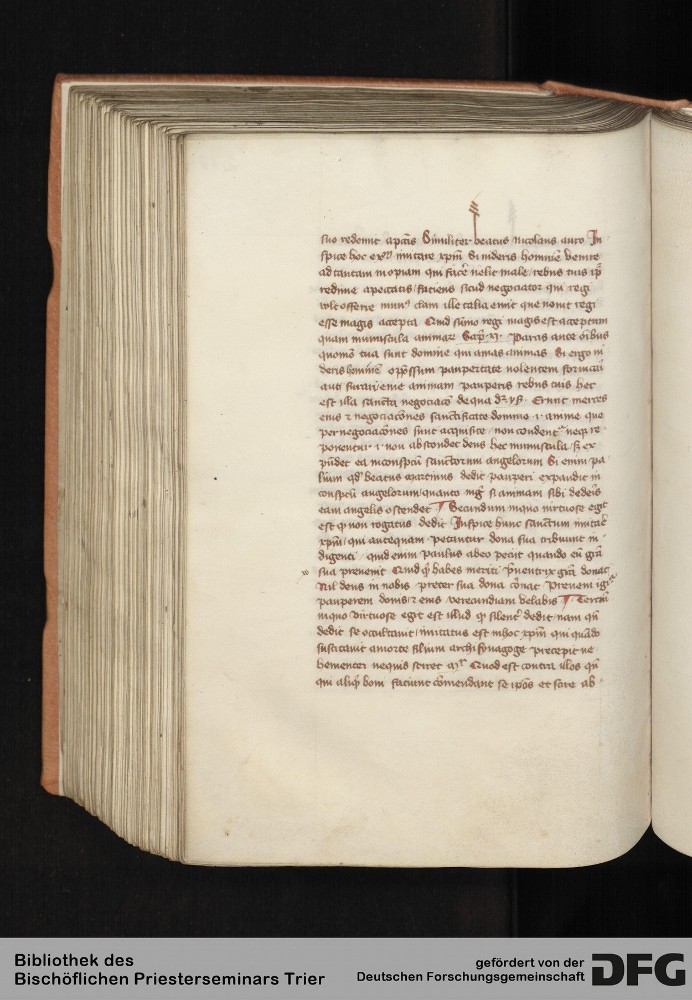 suo redemit apctis Similiter beatus nicolaus auro In
spice hoc exm imitare xpm Si uideris hominem uenire
ad tantam inopiam qui facere uelit male / rebus tuis ip
redime a peccatis / faciens sicud negociator qui regi
volt offerre mun9 clam ille talia emit que nouit regi
esse magis accepta Quid summo regi magis est acceptum
quam munuscula animar Sap xi Parcis autem oibus
quoniam tua sunt domine qui amas animas Si ergo ui
deris hominem oppressum paupertate uolentem fornicari
aut furari / eme animam pauperis rebus tuis hec
est illa sancta negociaco de qua dr ys Erunt merces
eius et negociacones sanctificate domino .i. anime que
per negociacones sunt acquisite / non condent neque re
ponentur .i. non abscondet deus hec munuscula / sed ex
pandet ea in conspectu sanctorum angelorum Si enim pa
llium qd beatus martinus dedit pauperi expandit in
conspectu angelorum / quanto mgis si animam sibi dederis
eam angelis ostendet ¶ Secundum in quo uirtuose egit
est quod non rogatus dedit Inspice hunc sanctum imitare
xpm / qui antequam petantur dona sua tribuunt in
digenti / quid enim paulus ab eo peciit quando eum gra
sua preuenit Quid quod habes meriti preuentrix gra donat
Nil deus in nobis preter sua dona coronat Preueni igitur
pauperem donis / et eius verecundiam velabis ¶ Tercium
in quo virtuose egit est illud quod silenter dedit / nam quando
dedit se occultauit / imitatus est in hoc xpm qui quando
suscitauit a morte filium archisynagoge precepit ne
hementer ne quis sciret Quod est contra illos qui
qui aliquid boni faciunt commendant se ipos et fore ab
Bibliothek des
Bischöflichen Priesterseminars Trier
gefördert von der
Deutschen Forschungsgemeinschaft
DFG